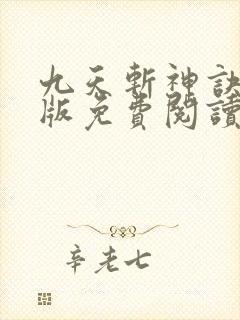 九天斬神訣
版免費閱讀
辛老七